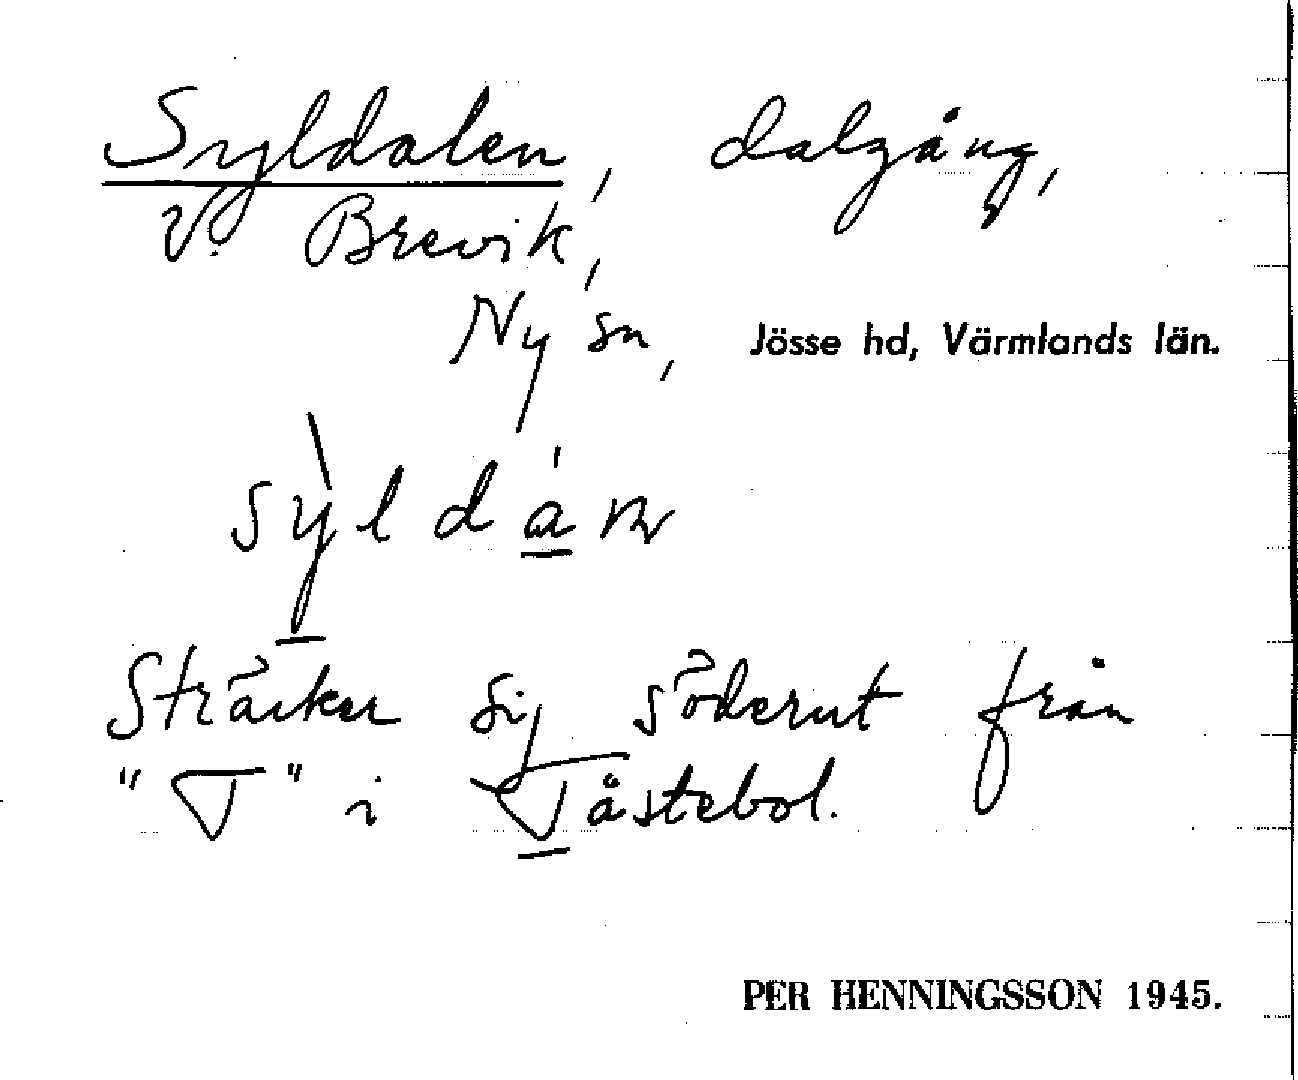 Syldalen, dalgång,
V. Brevik,
Ny sn, Jösse hd, Värmlands län.
sỳldán
Sträcker sig söderut från
"T" i Tåstebol.
PER HENNINGSSON 1945.